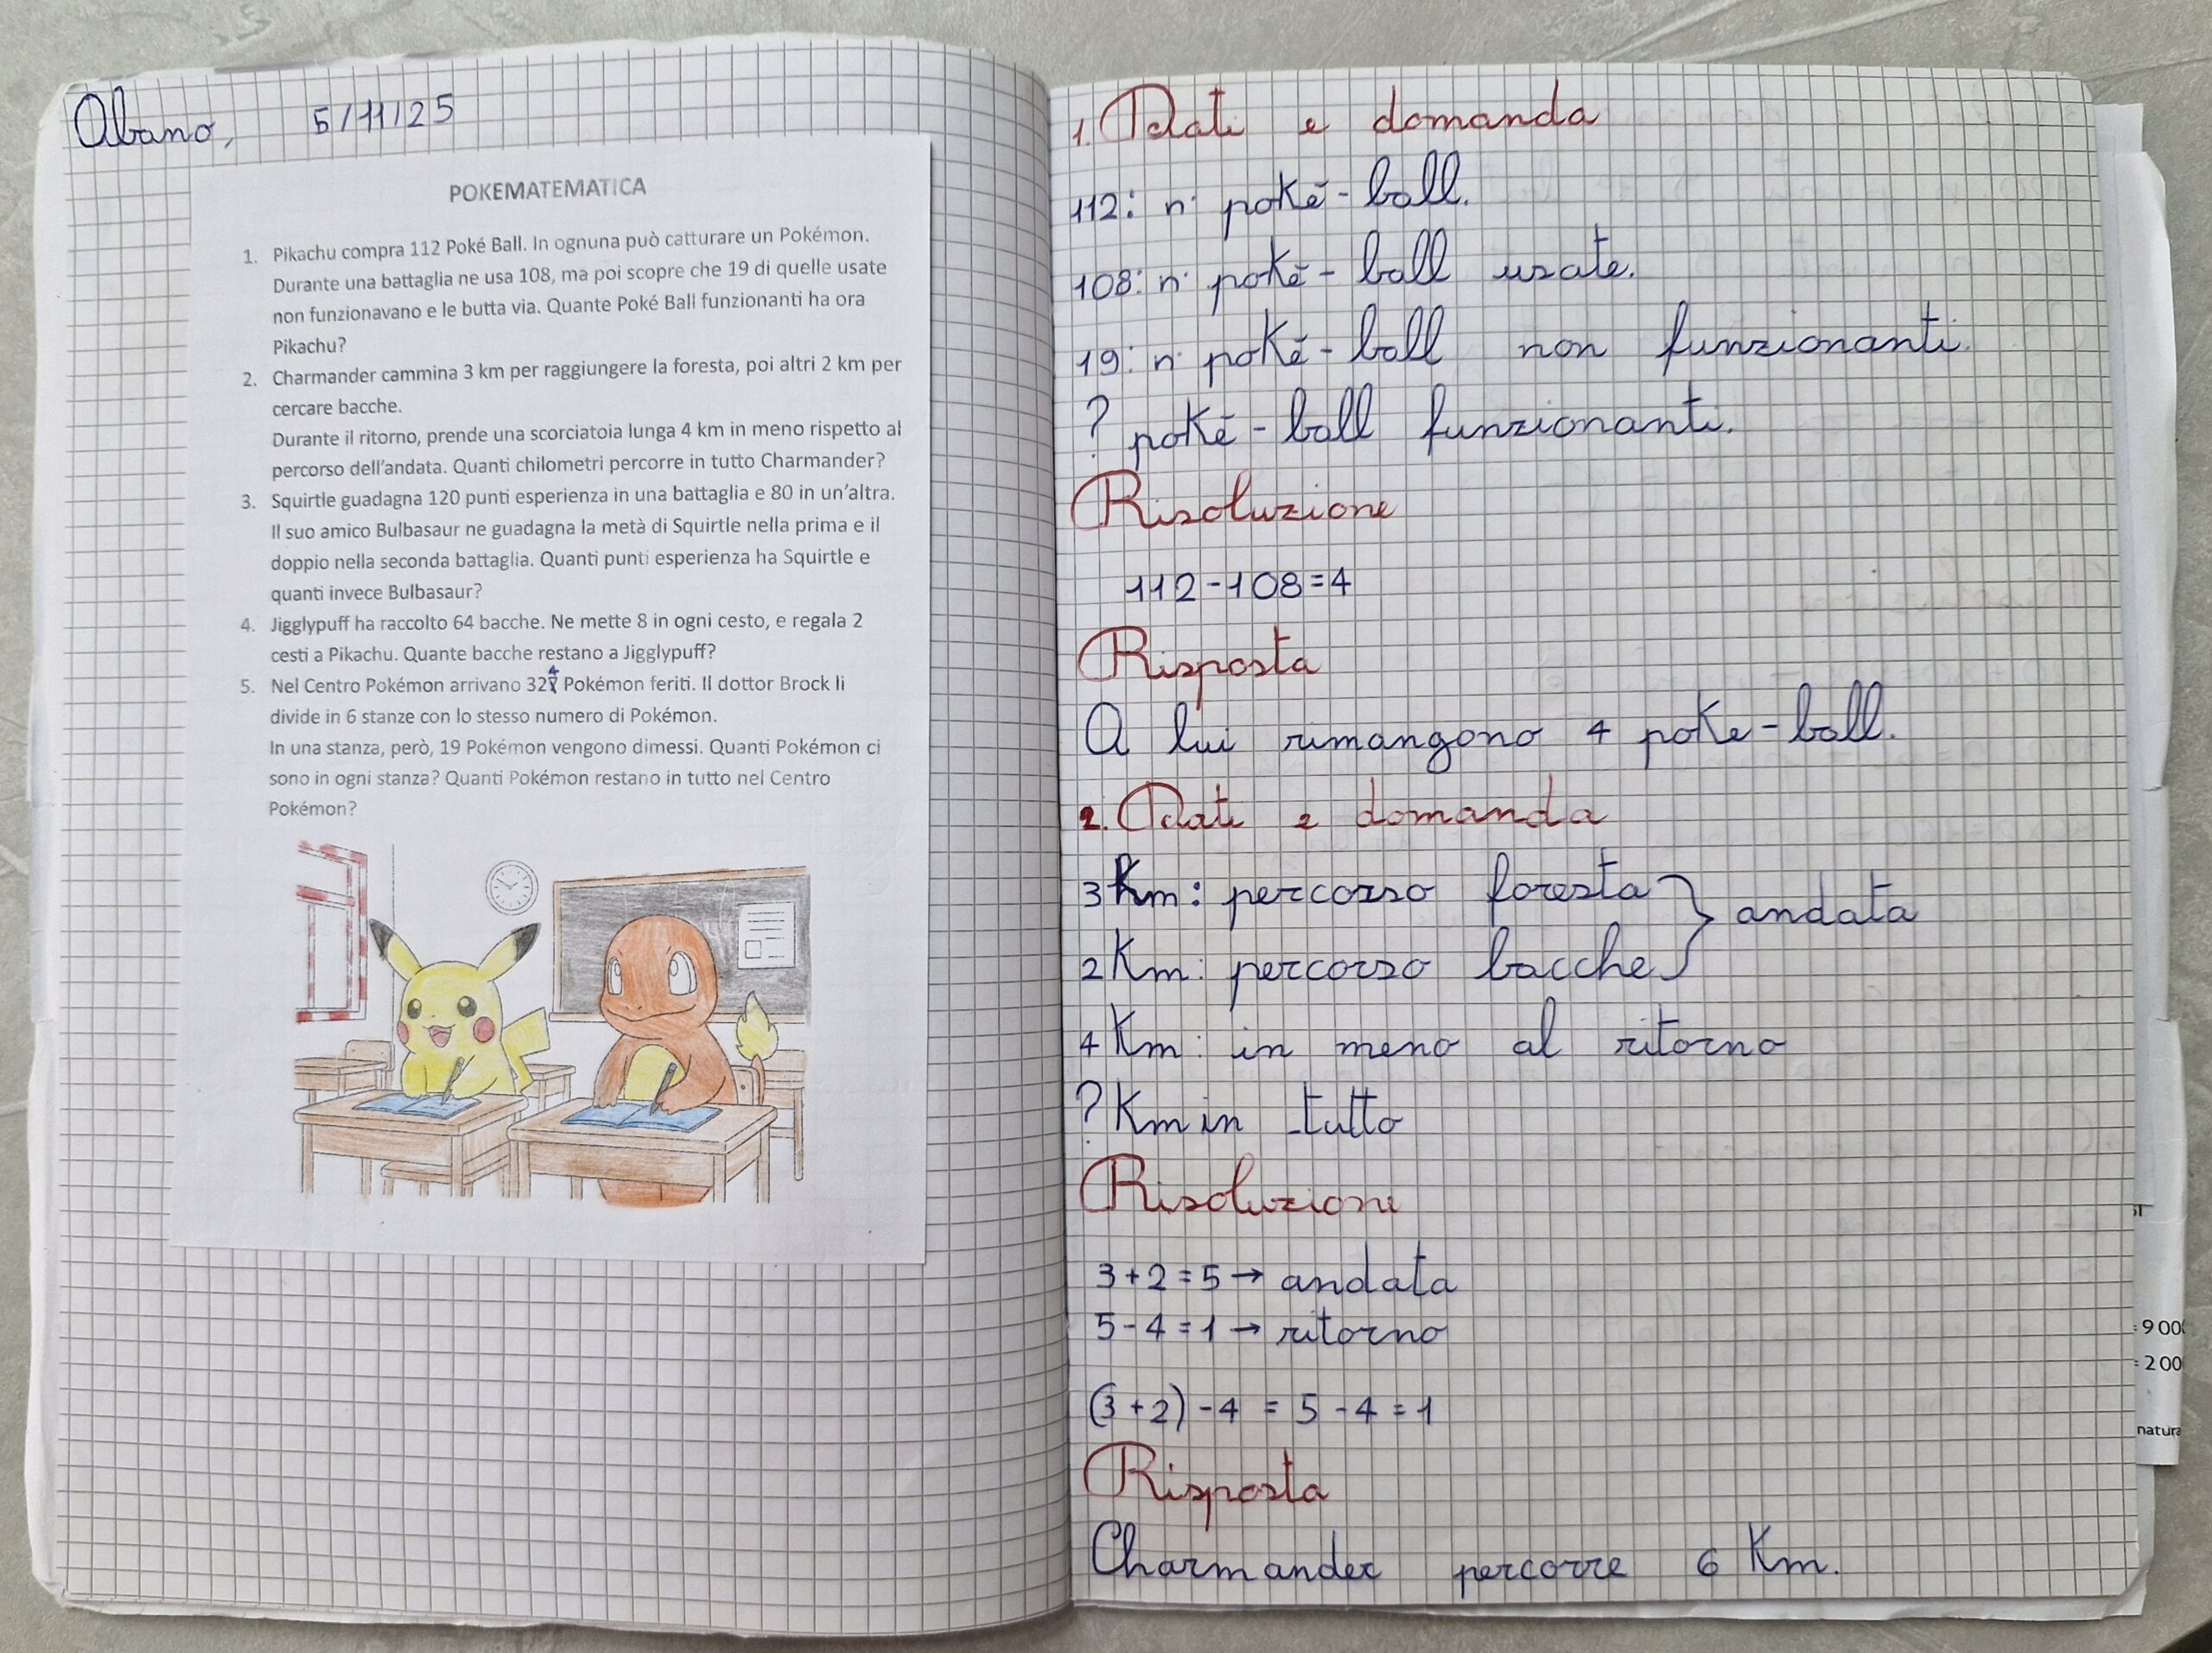 Abano, 5/11/25
POKEMATEMATICA
1. Pikachu compra 112 Poké Ball. In ognuna può catturare un Pokémon.
Durante una battaglia ne usa 108, ma poi scopre che 19 di quelle usate
non funzionavano e le butta via. Quante Poké Ball funzionanti ha ora
Pikachu?
2. Charmander cammina 3 km per raggiungere la foresta, poi altri 2 km per
cercare bacche.
Durante il ritorno, prende una scorciatoia lunga 4 km in meno rispetto al
percorso dell'andata. Quanti chilometri percorre in tutto Charmander?
3. Squirtle guadagna 120 punti esperienza in una battaglia e 80 in un'altra.
Il suo amico Bulbasaur ne guadagna la metà di Squirtle nella prima e il
doppio nella seconda battaglia. Quanti punti esperienza ha Squirtle e
quanti invece Bulbasaur?
4. Jigglypuff ha raccolto 64 bacche. Ne mette 8 in ogni cesto, e regala 2
cesti a Pikachu. Quante bacche restano a Jigglypuff?
5. Nel Centro Pokémon arrivano 324 Pokémon feriti. Il dottor Brock li
divide in 6 stanze con lo stesso numero di Pokémon.
In una stanza, però, 19 Pokémon vengono dimessi. Quanti Pokémon ci
sono in ogni stanza? Quanti Pokémon restano in tutto nel Centro
Pokémon?
1. Dati e domanda
112: n° poké-ball.
108: n° poké-ball usate.
19: n° poké-ball non funzionanti.
? poké-ball funzionanti.
Risoluzione
112-108=4
Risposta
A lui rimangono 4 poke-ball.
2. Dati e domanda
3 Km: percorso foresta
2 Km: percorso bacche } andata
4 Km: in meno al ritorno
? Km in tutto
Risoluzione
3+2=5→ andata
5-4=1→ ritorno
(3+2)-4 = 5-4=1
Risposta
Charmander percorre 6 Km.
= 900
= 200
natura